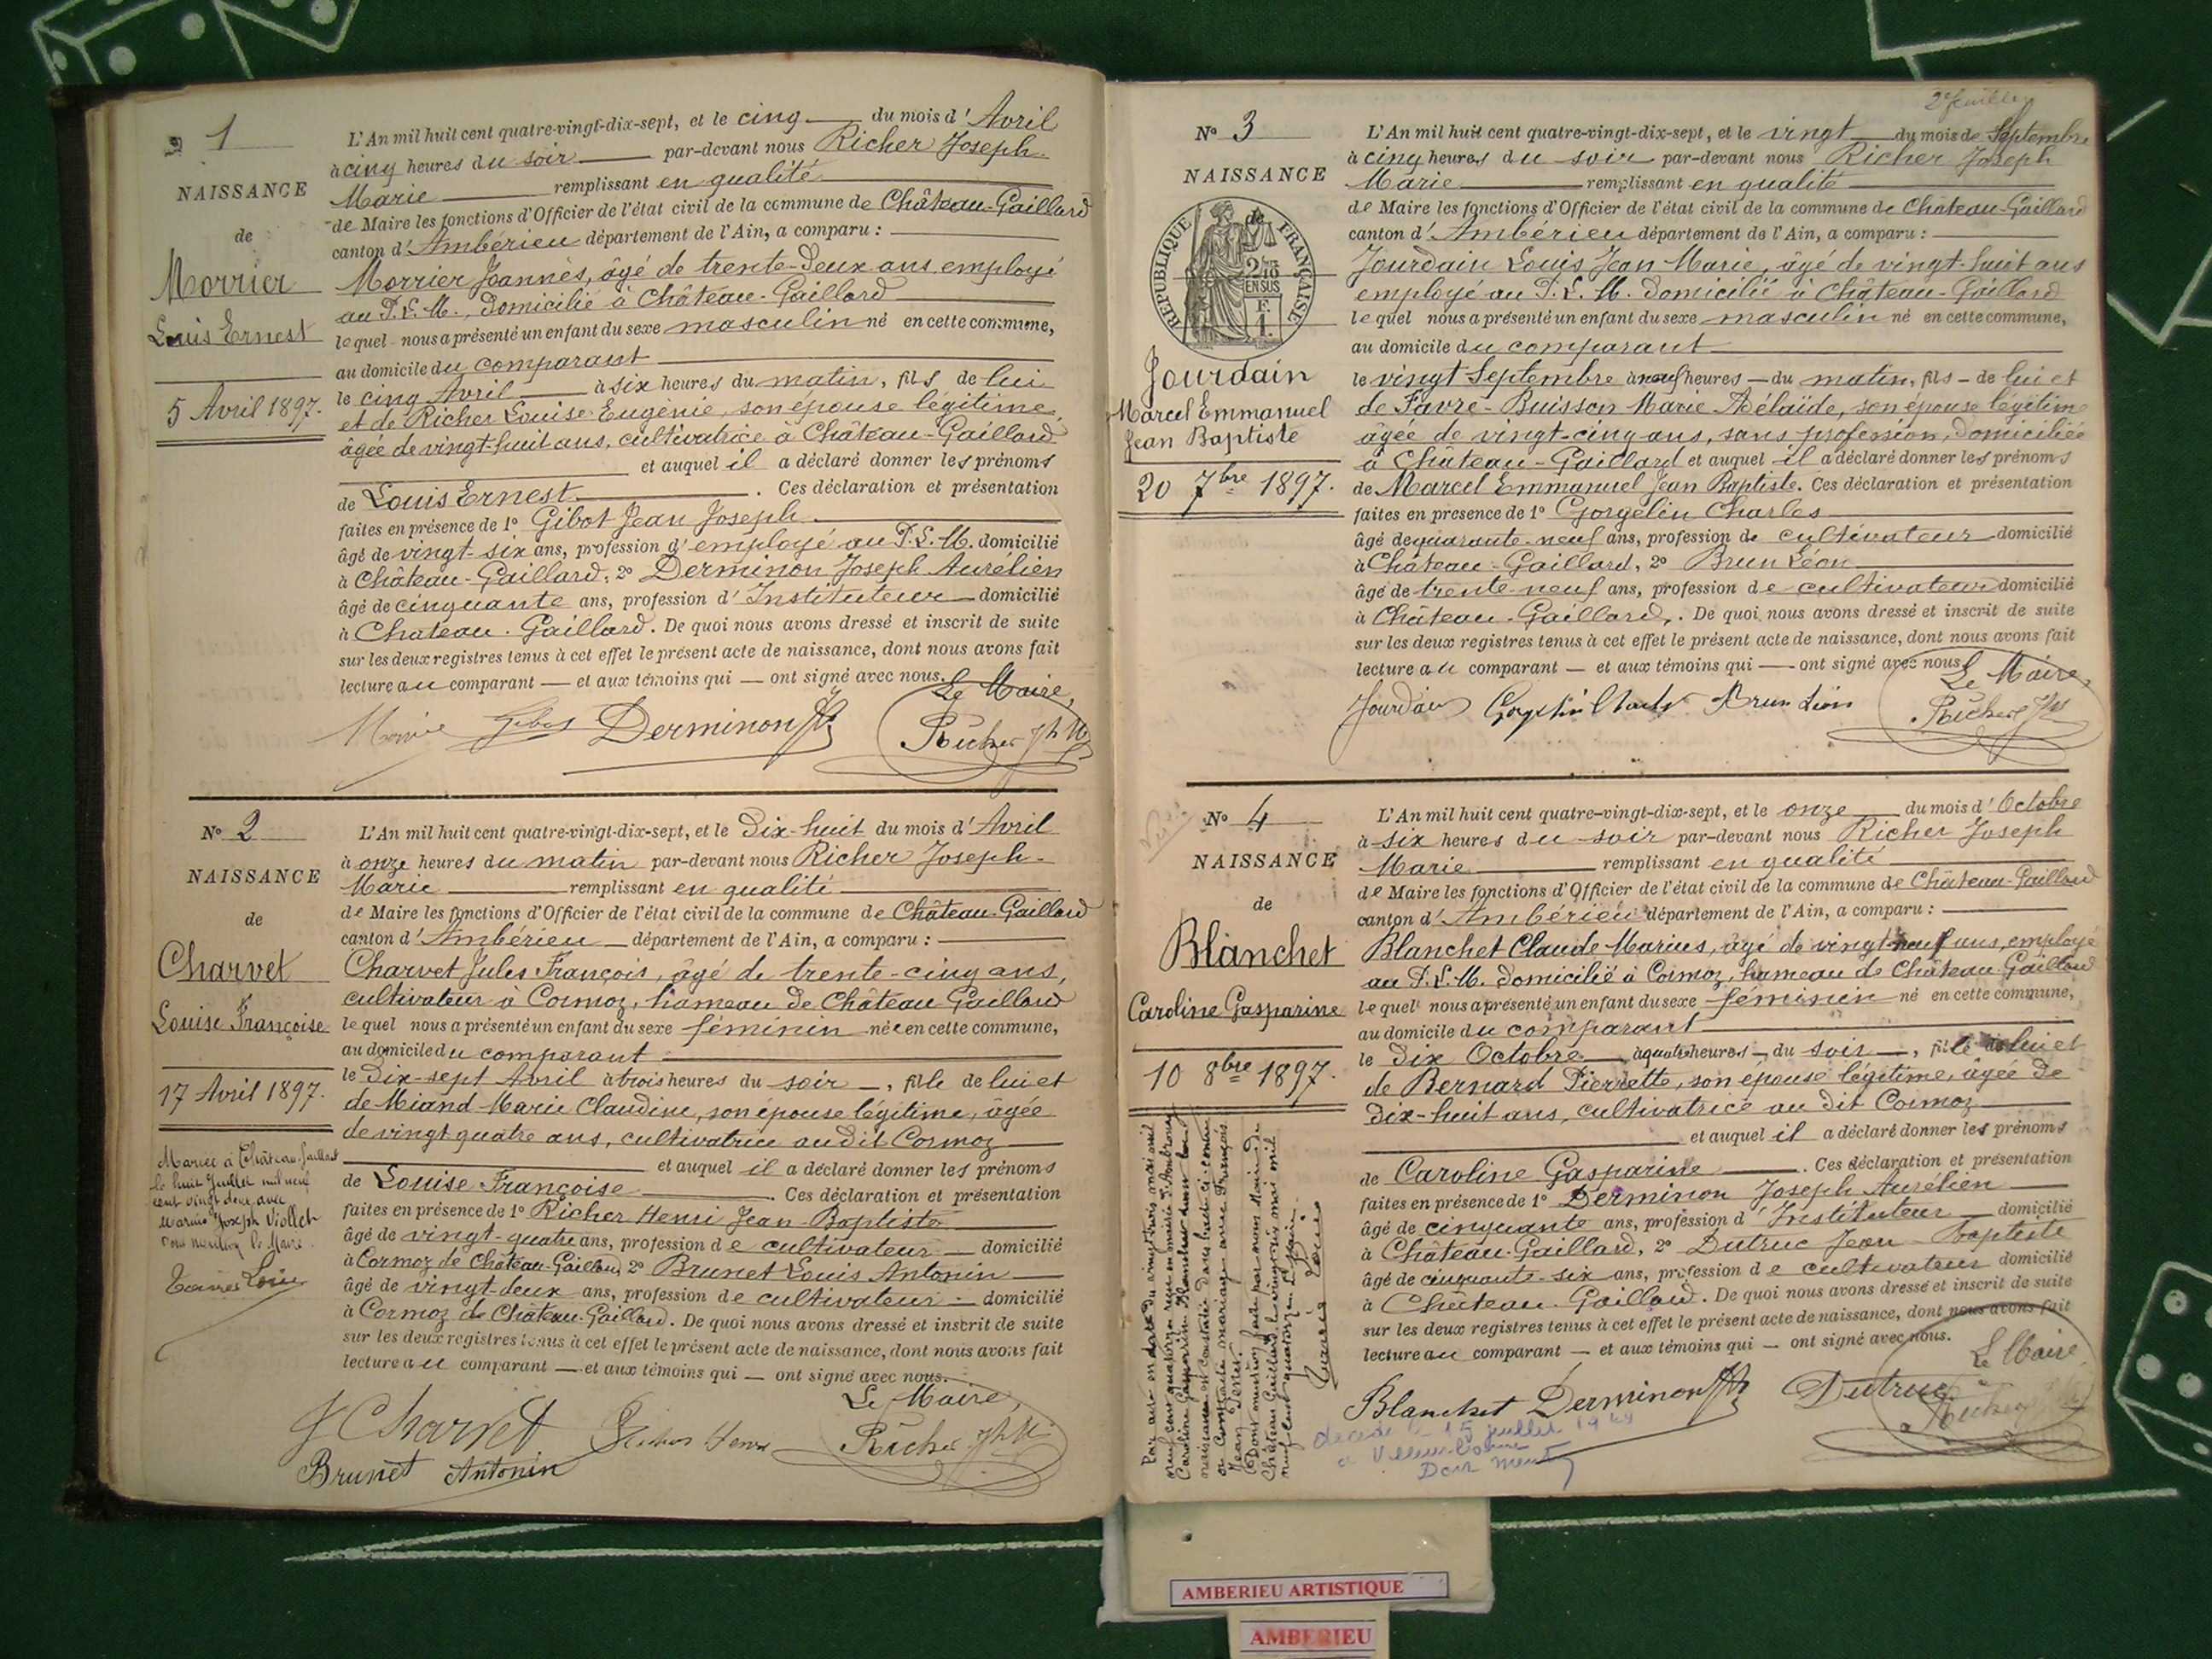 1
NAISSANCE
de
Morrier
Louis Ernest
5 Avril 1897.
L'An mil huit cent quatre-vingt-dix-sept, et le cinq du mois d'Avril
à cinq heures du soir par-devant nous Richer Joseph
Marie remplissant en qualité
de Maire les fonctions d'Officier de l'état civil de la commune de Château-Gaillard
canton d'Ambérieu département de l'Ain, a comparu :
Morrier Joannès, âgé de trente-deux ans employé
au P.L.M., domicilié à Château-Gaillard
lequel nous a présenté un enfant du sexe masculin né en cette commune,
au domicile du comparant
le cinq Avril à six heures du matin, fils de lui
et de Richer Louise Eugénie, son épouse légitime,
âgée de vingt-huit ans, cultivatrice à Château-Gaillard
et auquel il a déclaré donner les prénoms
de Louis Ernest. Ces déclaration et présentation
faites en présence de 1° Gibot Jean Joseph
âgé de vingt-six ans, profession d'employé au P.L.M. domicilié
à Château-Gaillard, 2° Derminon Joseph Aurélien
âgé de cinquante ans, profession d'Instituteur domicilié
à Chateau-Gaillard. De quoi nous avons dressé et inscrit de suite
sur les deux registres tenus à cet effet le présent acte de naissance, dont nous avons fait
lecture au comparant — et aux témoins qui — ont signé avec nous.
Le Maire,
Gibot Derminon Richer Jh M
N° 2
NAISSANCE
de
Charvet
Louise Françoise
17 Avril 1897.
Mariée à Château-Gaillard
le huit Juillet mil neuf
cent vingt deux avec
Marius Joseph Viollet
Dont mention le Maire
L'An mil huit cent quatre-vingt-dix-sept, et le Dix-huit du mois d'Avril
à onze heures du matin par-devant nous Richer Joseph
Marie remplissant en qualité
de Maire les fonctions d'Officier de l'état civil de la commune de Château-Gaillard
canton d'Ambérieu département de l'Ain, a comparu :
Charvet Jules François, âgé de trente-cinq ans,
cultivateur à Cormoz, hameau de Château Gaillard
lequel nous a présenté un enfant du sexe féminin née en cette commune,
au domicile du comparant
le Dix-sept Avril à trois heures du soir —, fille de lui et
de Miand Marie Claudine, son épouse légitime, âgée
de vingt quatre ans, cultivatrice audit Cormoz
et auquel il a déclaré donner les prénoms
de Louise Françoise. Ces déclaration et présentation
faites en présence de 1° Richer Henri Jean-Baptiste
âgé de vingt-quatre ans, profession de cultivateur domicilié
à Cormoz de Château-Gaillard 2° Brunet Louis Antonin
âgé de vingt-deux ans, profession de cultivateur domicilié
à Cormoz de Château-Gaillard. De quoi nous avons dressé et inscrit de suite
sur les deux registres tenus à cet effet le présent acte de naissance, dont nous avons fait
lecture au comparant — et aux témoins qui — ont signé avec nous.
Le Maire,
J Charvet Richer Henri Richer Jh M
Brunet Antonin
2e feuille
N° 3
NAISSANCE
de
RÉPUBLIQUE FRANÇAISE
2/10
EN SUS
F.
1.
Jourdain
Marcel Emmanuel
Jean Baptiste
20 7bre 1897.
L'An mil huit cent quatre-vingt-dix-sept, et le vingt du mois de Septembre
à cinq heures du soir par-devant nous Richer Joseph
Marie remplissant en qualité
de Maire les fonctions d'Officier de l'état civil de la commune de Château-Gaillard
canton d'Ambérieu département de l'Ain, a comparu :
Jourdain Louis Jean Marie, âgé de vingt-huit ans
employé au P.L.M. domicilié à Château-Gaillard
lequel nous a présenté un enfant du sexe masculin né en cette commune,
au domicile du comparant
le vingt Septembre à neuf heures — du matin, fils — de lui et
de Favre-Buisson Marie Adélaïde, son épouse légitime
âgée de vingt-cinq ans, sans profession, domiciliée
à Château-Gaillard et auquel il a déclaré donner les prénoms
de Marcel Emmanuel Jean Baptiste. Ces déclaration et présentation
faites en présence de 1° Gorgelin Charles
âgé de quarante-neuf ans, profession de cultivateur domicilié
à Château-Gaillard, 2° Brun Léon
âgé de trente-neuf ans, profession de cultivateur domicilié
à Château-Gaillard,. De quoi nous avons dressé et inscrit de suite
sur les deux registres tenus à cet effet le présent acte de naissance, dont nous avons fait
lecture au comparant — et aux témoins qui — ont signé avec nous
Le Maire,
Jourdain Gorgelin Charles Brun Léon Richer Jh
N° 4
NAISSANCE
de
Blanchet
Caroline Gasparine
10 8bre 1897.
L'An mil huit cent quatre-vingt-dix-sept, et le onze du mois d'Octobre
à six heures du soir par-devant nous Richer Joseph
Marie remplissant en qualité
de Maire les fonctions d'Officier de l'état civil de la commune de Château-Gaillard
canton d'Ambérieu département de l'Ain, a comparu :
Blanchet Claude Marius, âgé de vingt-neuf ans, employé
au P.L.M. domicilié à Cormoz, hameau de Château-Gaillard
lequel nous a présenté un enfant du sexe féminin né en cette commune,
au domicile du comparant
le Dix Octobre à quatre heures — du soir —, fille de lui et
de Bernard Pierrette, son épouse légitime, âgée de
Dix-huit ans, cultivatrice au dit Cormoz
et auquel il a déclaré donner les prénoms
de Caroline Gasparine. Ces déclaration et présentation
faites en présence de 1° Derminon Joseph Aurélien
âgé de cinquante ans, profession d'Instituteur domicilié
à Château-Gaillard, 2° Dutruc Jean-Baptiste
âgé de cinquante-six ans, profession de cultivateur domicilié
à Château-Gaillard. De quoi nous avons dressé et inscrit de suite
sur les deux registres tenus à cet effet le présent acte de naissance, dont nous avons fait
lecture au comparant — et aux témoins qui — ont signé avec nous.
Le Maire
Blanchet Derminon Dutruc Richer
15 juillet 19
AMBERIEU ARTISTIQUE
AMBERIEU